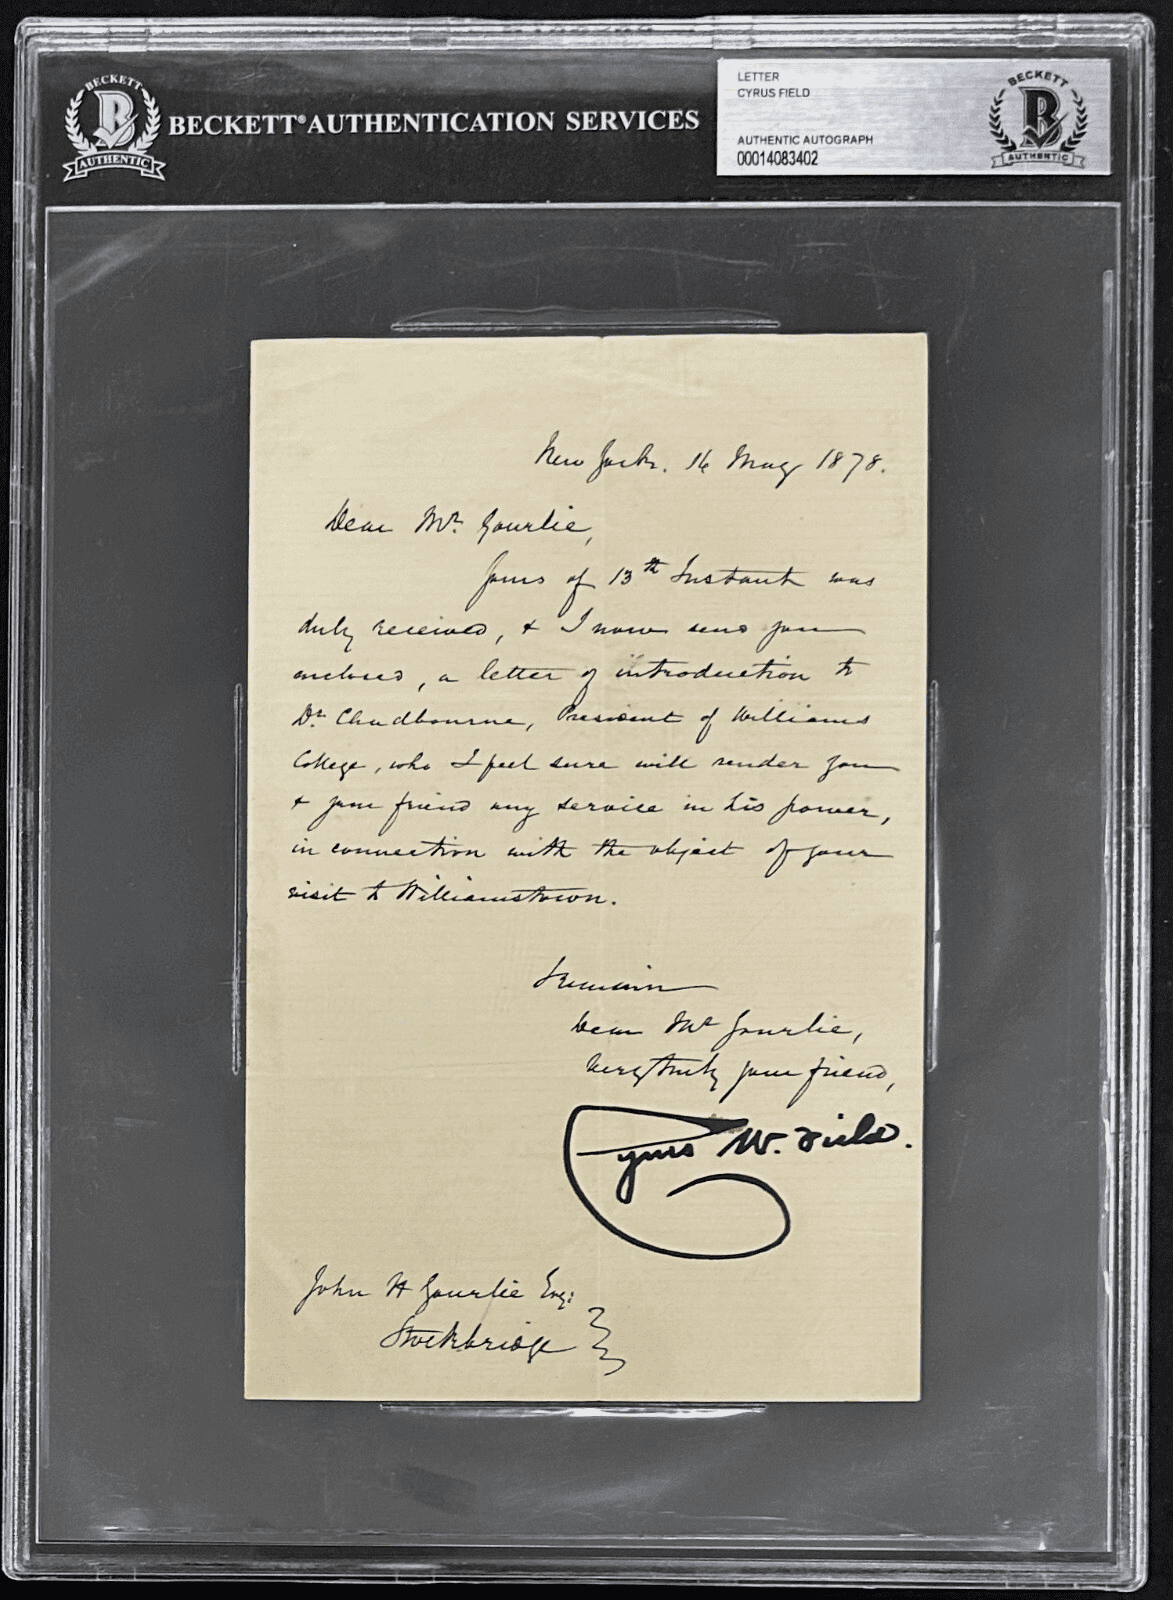 BECKETT
AUTHENTIC
BECKETT® AUTHENTICATION SERVICES
LETTER
CYRUS FIELD
AUTHENTIC AUTOGRAPH
00014083402
BECKETT
AUTHENTIC
New York. 14 May 1878.
Dear Mr. Gourlie,
Yours of 13th Instant was
duly received, & I now send you
enclosed, a letter of introduction to
Dr. Chadbourne, President of Williams
College, who I feel sure will render you
& your friend any service in his power,
in connection with the object of your
visit to Williamstown.
I remain
Dear Mr Gourlie,
Very truly your friend,
Cyrus W. Field.
John H Gourlie Esq:
Stockbridge